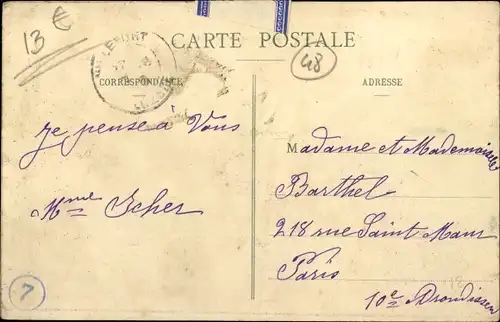 13 €
CARTE POSTALE
48
CORRESPONDANCE
ADRESSE
je pense à Vous
Mme Scher
Madame et Mademoiselle
Barthel
218 rue Saint Maur
Paris
10e Arrondissem
7